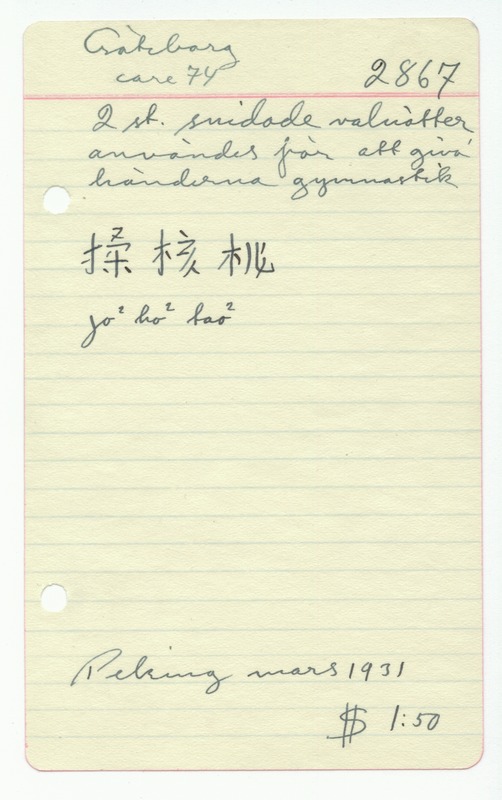 Göteborg
care 74
2867
2 st. snidade valnötter
användes för att givа
händerna gymnastik
揉核桃
jo² ho² tao²
Peking mars 1931
$ 1:50